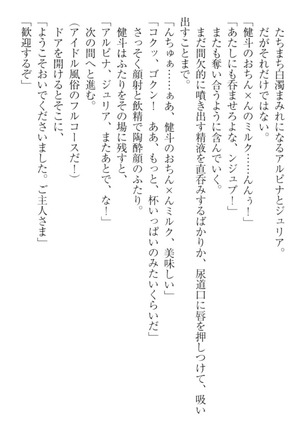 たちまち白濁まみれになるアルビナとジュリア。
だがそれだけではない。
「健斗のおちん×んのミルク……んんぅ！」
「あたしにも呑ませろよな、ンジュプ！」
またも奪い合うように含んでいく。
まだ間欠的に噴き出す精液を直呑みするばかりか、尿道口に唇を押しつけて、吸い
出すことまで。
「んちゅぅ……ぁあ、健斗のおちん×んミルク、美味しい」
「コクッ、ゴクン！　ああ、もっと、杯いっぱいのみたいくらいだ」
さっそく顔射と飲精で陶酔顔のふたり。
健斗はふたりをその場に残すと、
「アルビナ、ジュリア、またあとで、な！」
次の間へと進む。
（アイドル風俗のフルコースだ！）
ドアを開けるとそこに、
「ようこそおいでくださいました。ご主人さま」
「歓迎するぞ」